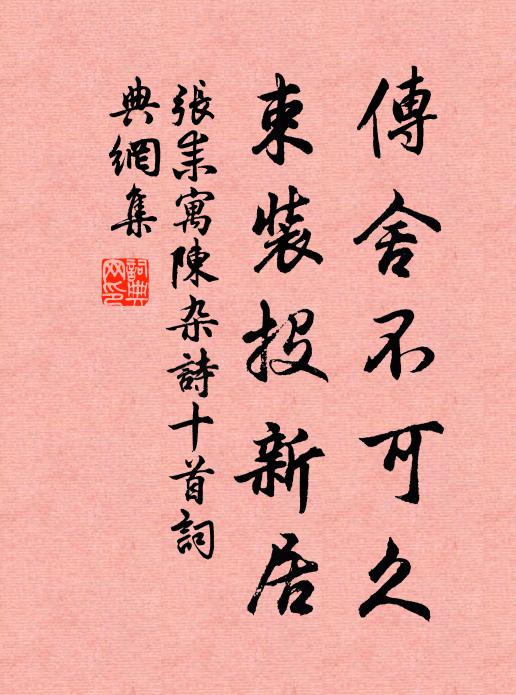 傳舍不可久
束裝投新居
張耒寓陳杂詩十首詞
典網集
詞典網印